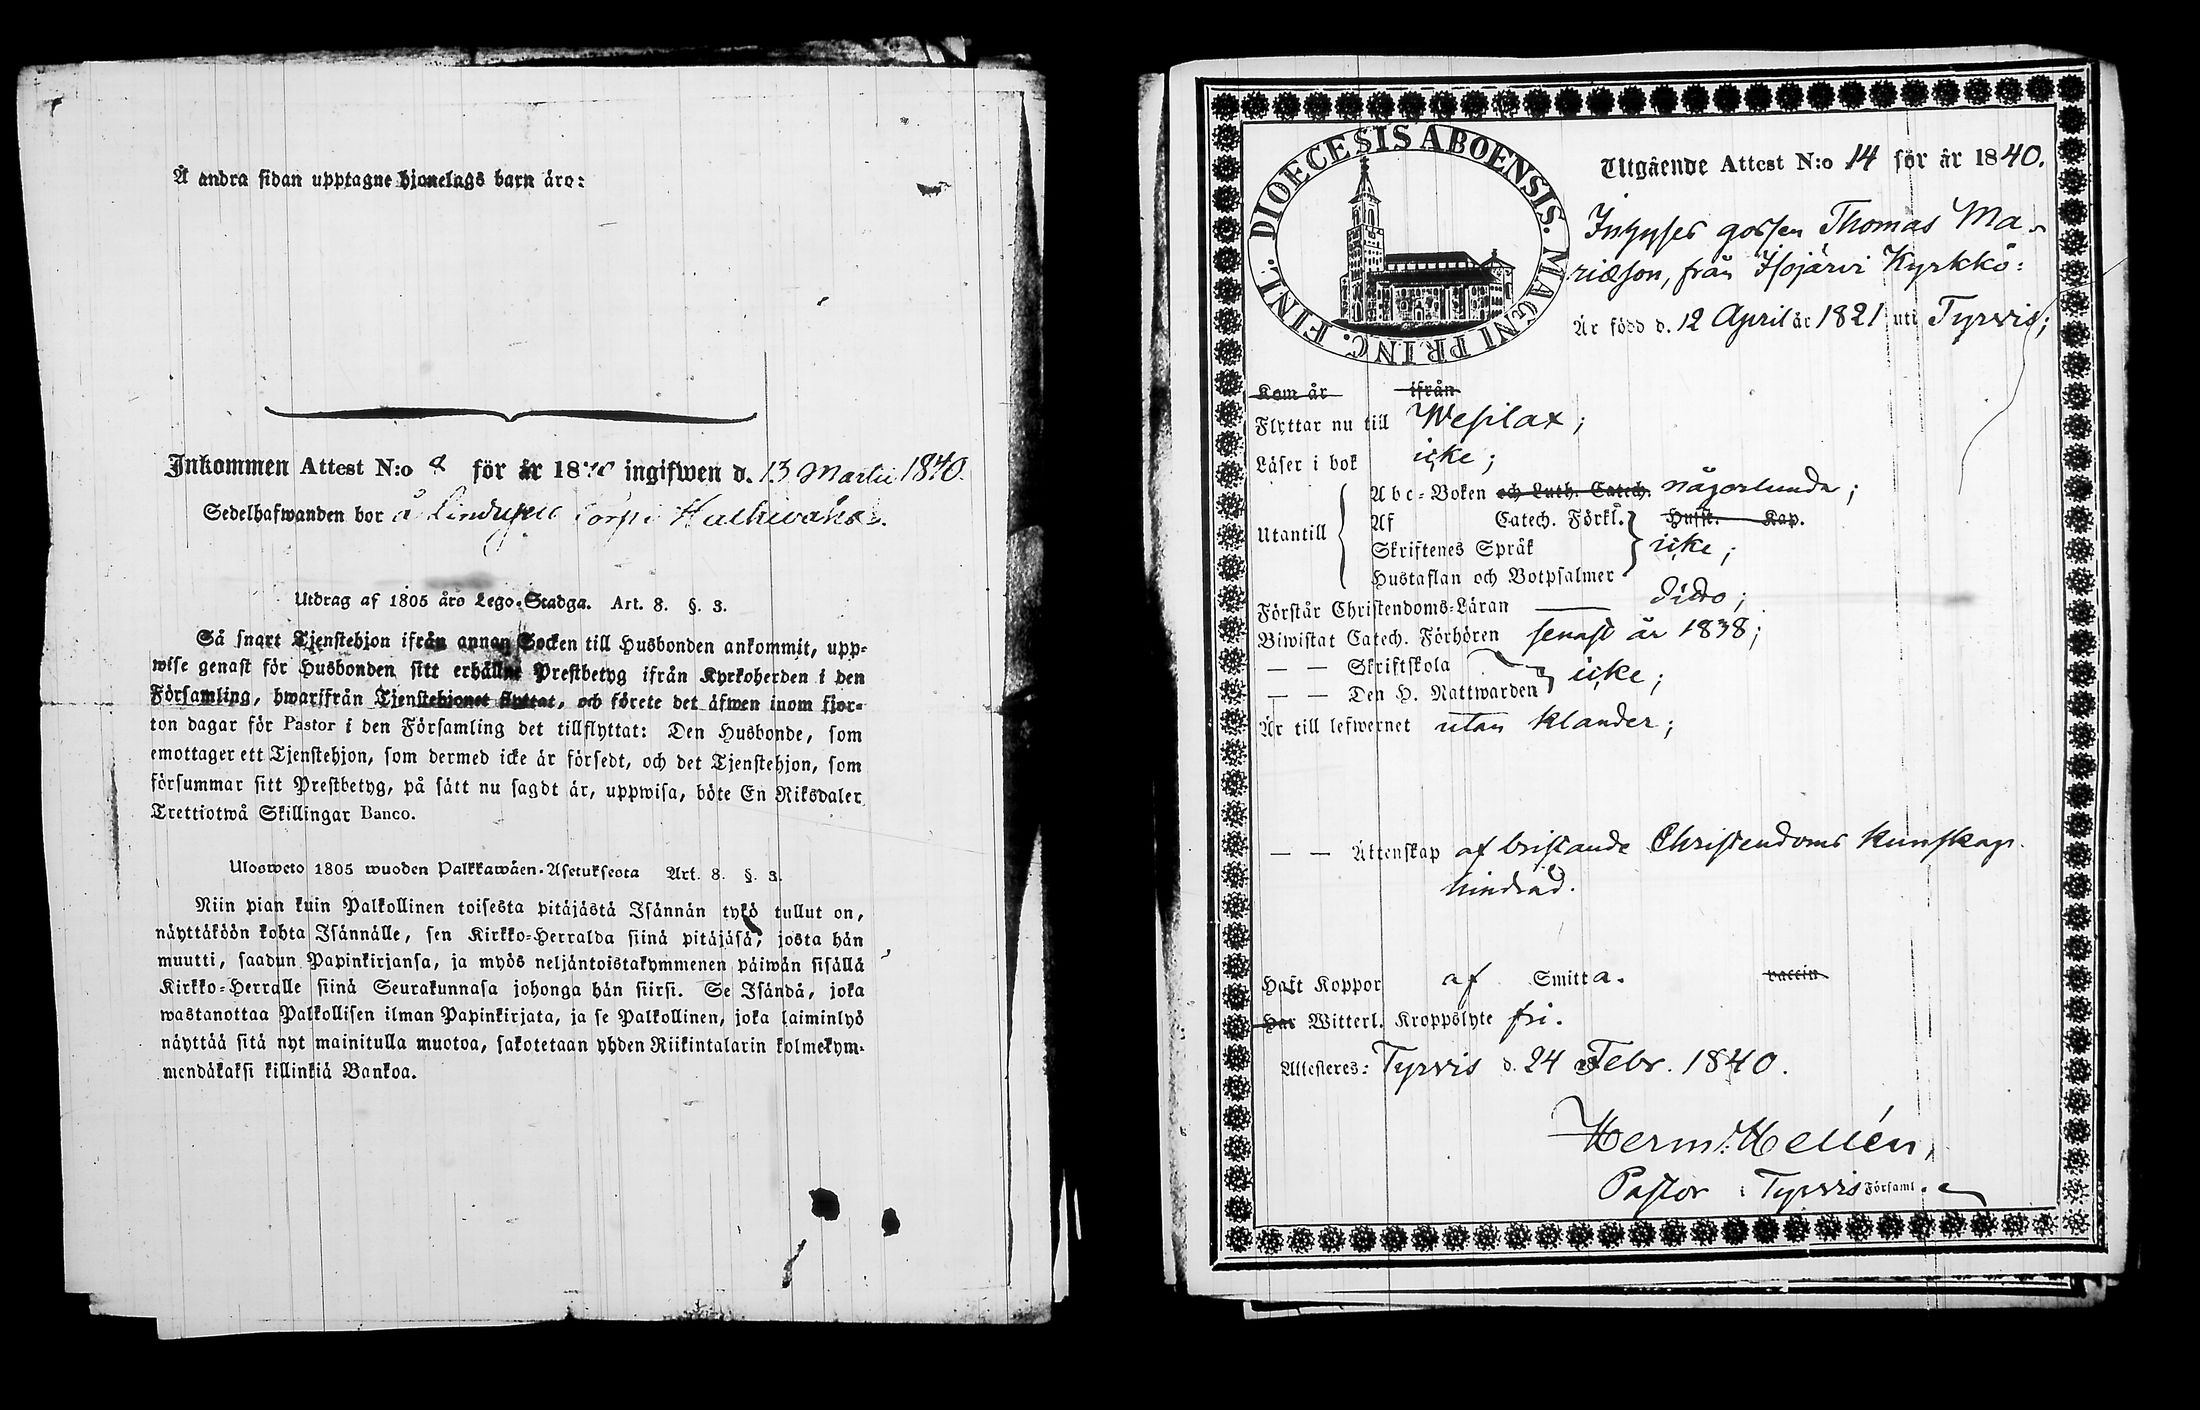 Å andra sidan upptagne hjonelags barn äro:
Inkommen Attest N:o 8 för år 1840 ingifwen d. 13 Martii 1840.
Sedelhafwanden bor å
Utdrag af 1805 års Lego-Stadga. Art. 8. §. 3.
Så snart Tjenstehjon ifrån annan Socken till Husbonden ankommit, upp-
wise genast för Husbonden sitt erhållne Prestbetyg ifrån Kyrkoherden i den
Församling, hwarifrån Tjenstehjonet flyttat, och förete det äfwen inom fjor-
ton dagar för Pastor i den Församling det tillflyttat: Den Husbonde, som
emottager ett Tjenstehjon, som dermed icke är försedt, och det Tjenstehjon, som
försummar sitt Prestbetyg, på sätt nu sagdt är, uppwisa, böte En Riksdaler
Trettiotwå Skillingar Banco.
Ulosweto 1805 wuoden Palkkawäen-Asetuksesta Art. 8. §. 3.
Niin pian kuin Palkollinen toisesta pitäjästä Isännän tykö tullut on,
näyttäköön kohta Isännälle, sen Kirkko-Herralda siinä pitäjäsä, josta hän
muutti, saadun Papinkirjansa, ja myös neljäntoistakymmenen päiwän sisällä
Kirkko-Herralle siinä Seurakunnasa johonga hän siirsi. Se Isändä, joka
wastanottaa Palkollisen ilman Papinkirjata, ja se Palkollinen, joka laiminlyö
näyttää sitä nyt mainitulla muotoa, sakotetaan yhden Riikintalarin kolmekym-
mendäkaksi killinkiä Bankoa.
DIOECESIS ABOENSIS. MAGNI PRINC. FINL.
Utgående Attest N:o 14 för år 1840.
Inhyses gossen Thomas Ma-
riæson, från Isojärvi Kyrkkö:
Är född d. 12 April år 1821 uti Tyrvis;
Kom år ifrån
Flyttar nu till Wesilax;
Läser i bok icke;
Abc-Boken och Luth. Catech. någorlunda;
Utantill
Af Catech. Förkl. Husst. Kap.
Skriftenes Språk icke;
Hustaflan och Botpsalmer
Förstår Christendoms-Läran dido;
Biwistat Catech. Förhören senast år 1838;
— — Skriftskola
— — Den H. Nattwarden icke;
Är till lefwernet utan klander;
— — Äktenskap af bristande Christendoms kunskap
hindrad.
Haft Koppor af Smitta. vaccin
Har Witterl. Kroppslyte fri.
Attesteres: Tyrvis d. 24 Febr. 1840.
Herm. Hellén,
Pastor i Tyrvis Församl.